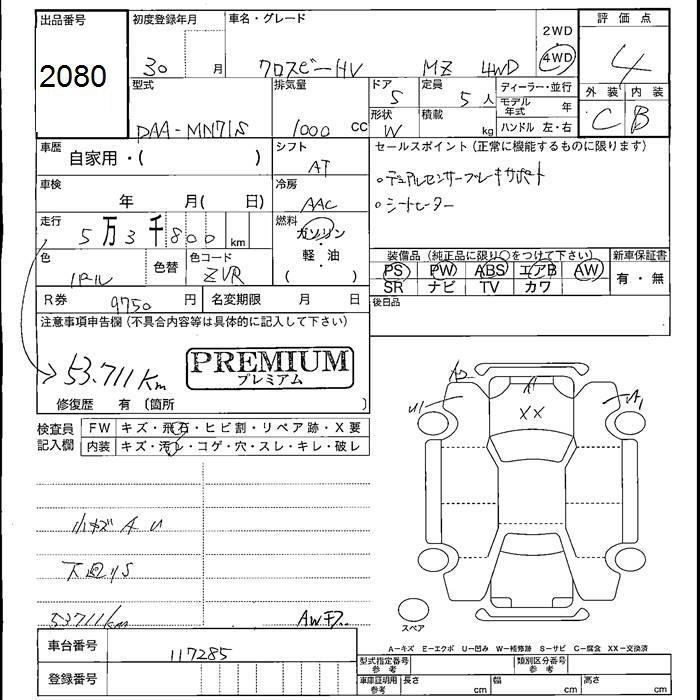 出品番号 初度登録年月 車名・グレード 2WD 評価点
2080 30 月 クロスビーHV MZ 4WD 4WD 4
型式 排気量 ドア 5 定員 5人 ディーラー・並行 外装 内装
DAA-MN71S 1000 cc 形状 W 積載 kg モデル年式 年 C B
ハンドル 左・右
車歴 自家用・( ) シフト AT セールスポイント (正常に機能するものに限ります)
車検 年 月( 日) 冷房 AAC 。デュアルセンサーブレーキサポート
。シートヒーター
走行 5万3千800 km 燃料 ガソリン・軽・油 ( )
色 パール 色替 色コード ZVR 装備品 (純正品に限り○をつけて下さい) 新車保証書
PS PW ABS エアB AW 有・無
SR ナビ TV カワ
R券 9750 円 名変期限 月 日 後日品
注意事項申告欄 (不具合内容等は具体的に記入して下さい)
53.711Km PREMIUM
プレミアム
修復歴 有 〔箇所 〕
検査員記入欄 FW キズ・飛石・ヒビ割・リペア跡・X要
内装 キズ・汚れ・コゲ・穴・スレ・キレ・破レ
U1 A1 A1
XX
小キズ A U
下廻りS
53711km AW
スペア
車台番号 117285
A−キズ E−エクボ U−凹み W−補修跡 S−サビ C−腐食 XX−交換済
登録番号 型式指定番号 参考 類別区分番号 参考
車庫証明用 参考 長さ cm 幅 cm 高さ cm